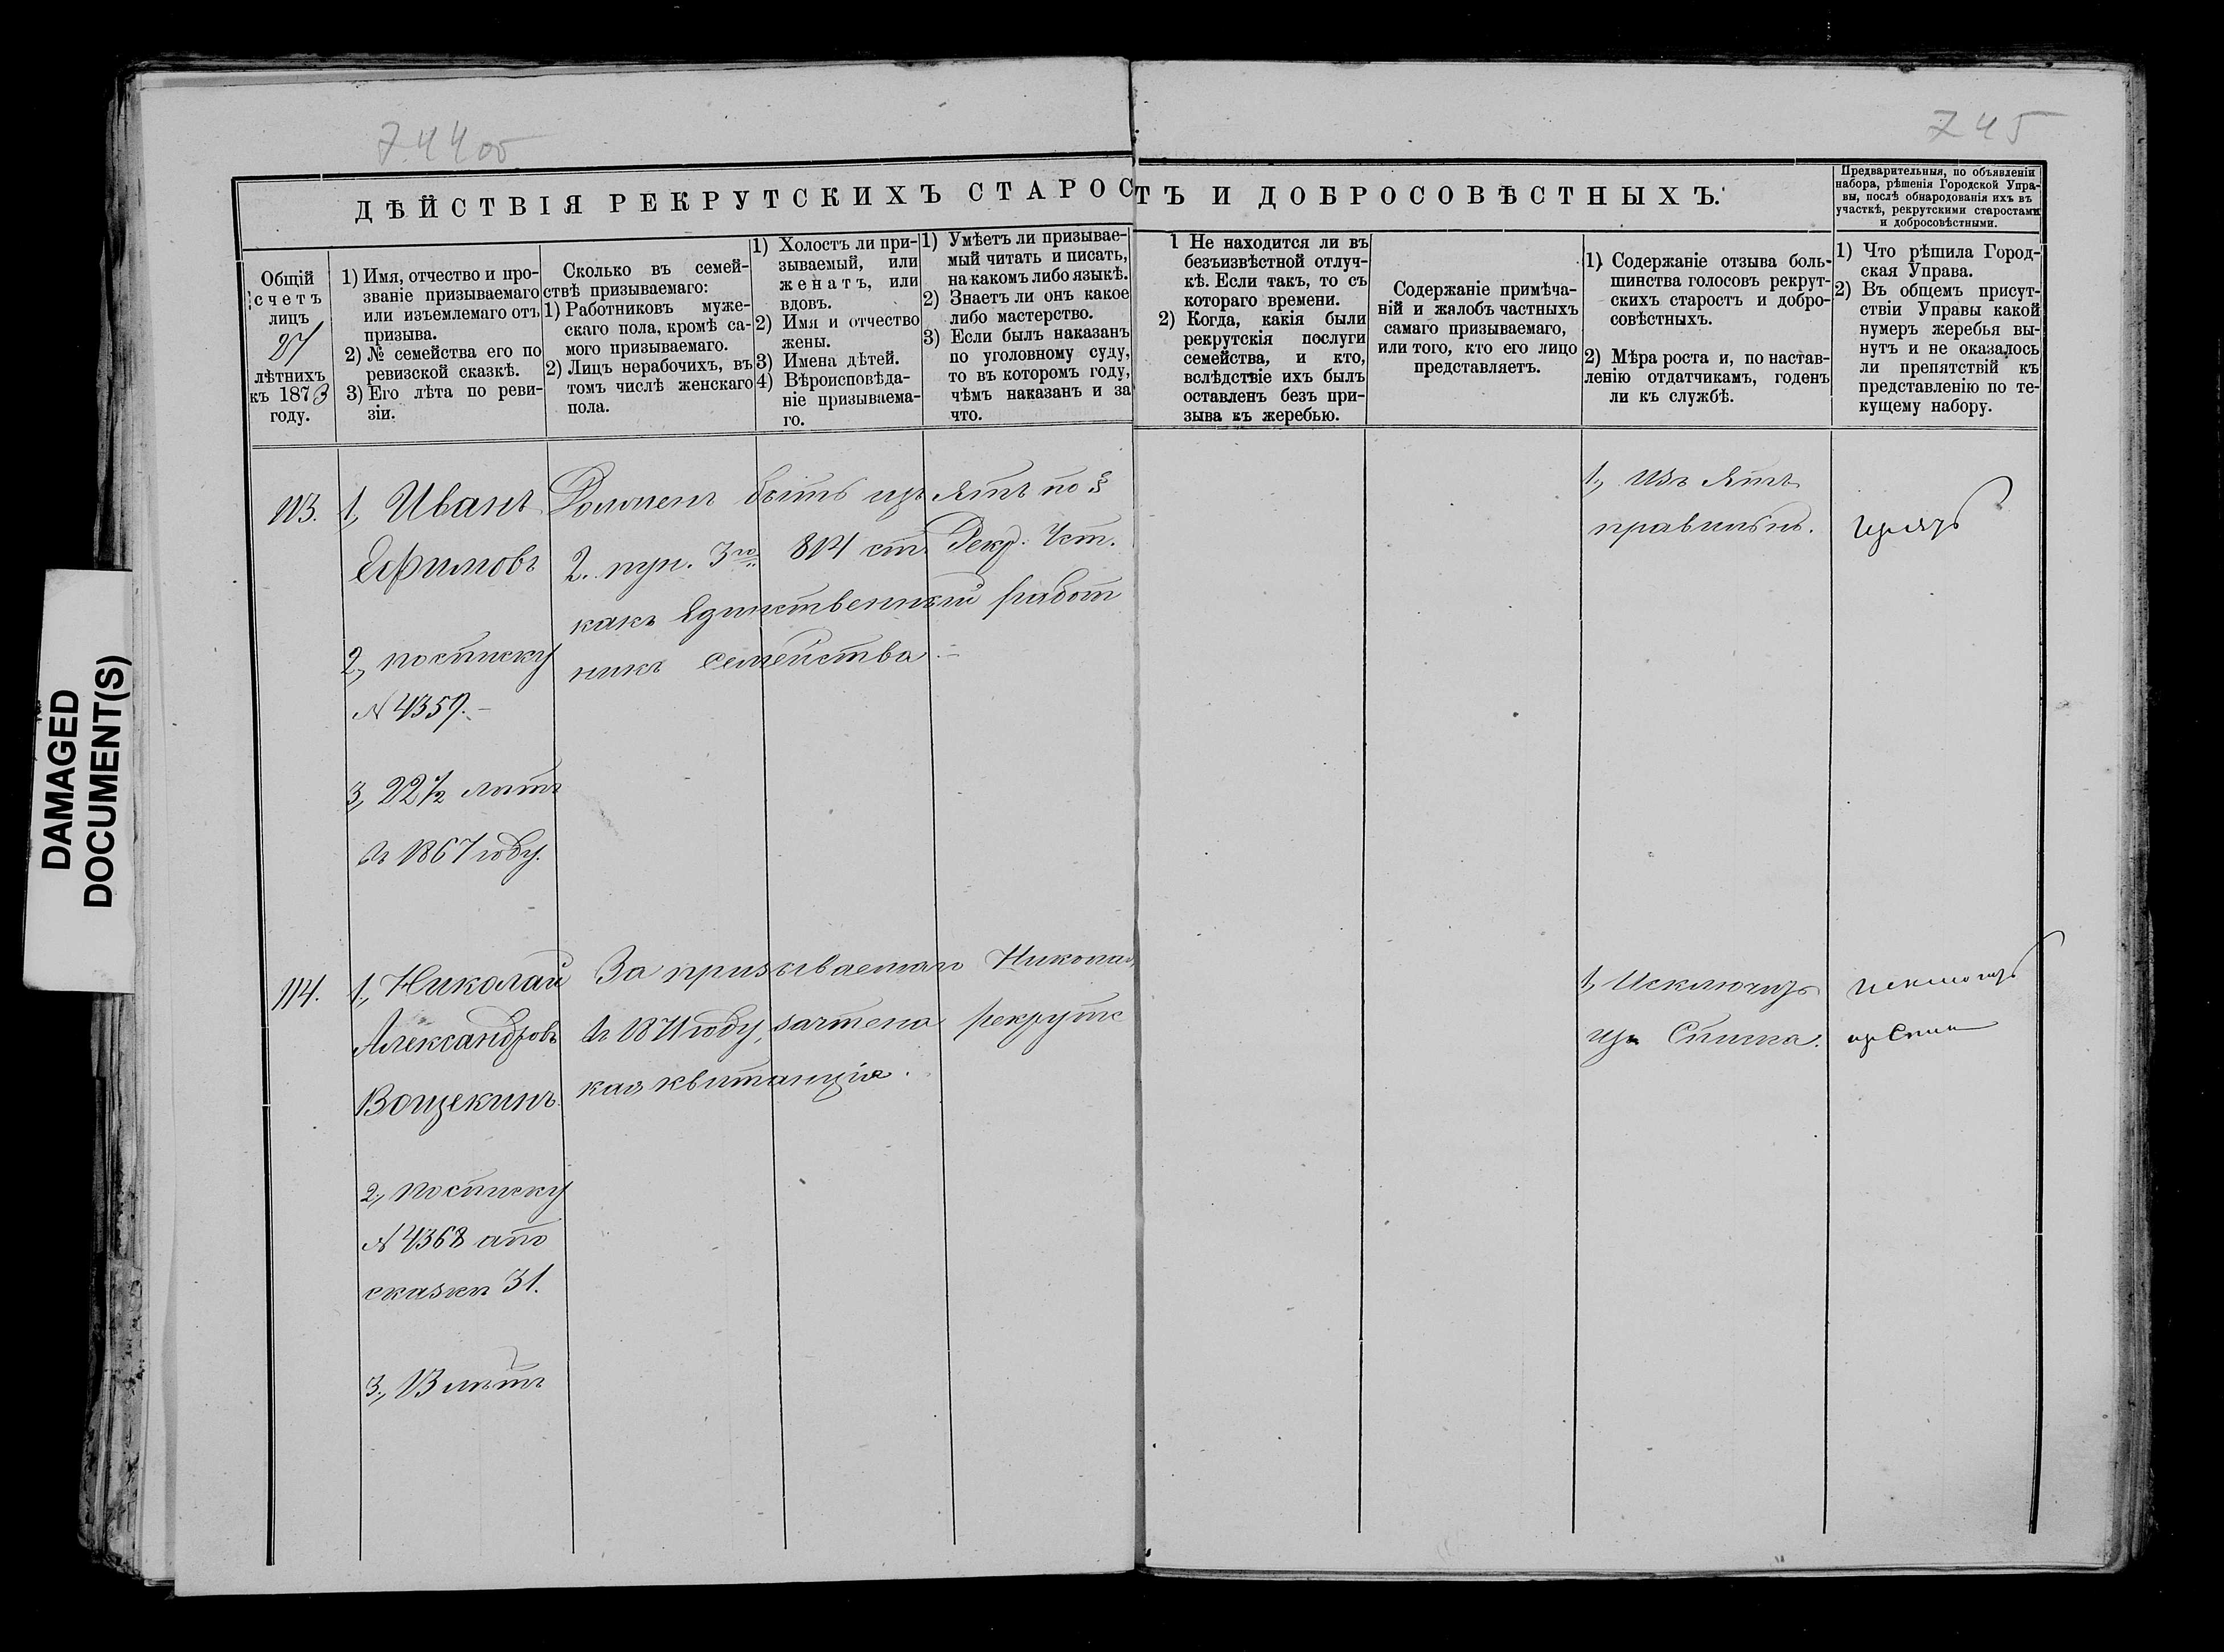 744об
745
ДѢЙСТВІЯ РЕКРУТСКИХЪ СТАРОСТЪ И ДОБРОСОВѢСТНЫХЪ.
Предварительныя, по объявленіи
набора, рѣшенія Городской Упра-
вы, послѣ обнародованія ихъ въ
участкѣ, рекрутскими старостами
и добросовѣстными.
Общій
счетъ
лицъ
27
лѣтнихъ
къ 1873
году.
1) Имя, отчество и про-
званіе призываемаго
или изъемлемаго отъ
призыва.
2) № семейства его по
ревизской сказкѣ.
3) Его лѣта по реви-
зіи.
Сколько въ семей-
ствѣ призываемаго:
1) Работниковъ муже-
скаго пола, кромѣ са-
мого призываемаго.
2) Лицъ нерабочихъ, въ
томъ числѣ женскаго
пола.
1) Холостъ ли при-
зываемый, или
женатъ, или
вдовъ.
2) Имя и отчество
жены.
3) Имена дѣтей.
4) Вѣроисповѣда-
ніе призываема-
го.
1) Умѣетъ ли призывае-
мый читать и писать,
на какомъ либо языкѣ.
2) Знаетъ ли онъ какое
либо мастерство.
3) Если былъ наказанъ
по уголовному суду,
то въ которомъ году,
чѣмъ наказанъ и за
что.
1 Не находится ли въ
безъизвѣстной отлуч-
кѣ. Если такъ, то съ
котораго времени.
2) Когда, какія были
рекрутскія послуги
семейства, и кто,
вслѣдствіе ихъ былъ
оставленъ безъ при-
зыва къ жеребью.
Содержаніе примѣча-
ній и жалобъ частныхъ
самаго призываемаго,
или того, кто его лицо
представляетъ.
1) Содержаніе отзыва боль-
шинства голосовъ рекрут-
скихъ старостъ и добро-
совѣстныхъ.
2) Мѣра роста и, по настав-
ленію отдатчикамъ, годенъ
ли къ службѣ.
1) Что рѣшила Город-
ская Управа.
2) Въ общемъ присут-
ствіи Управы какой
нумеръ жеребья вы-
нутъ и не оказалось
ли препятствій къ
представленію по те-
кущему набору.
113.
1, Иванъ
Ефимовъ
2, по списку
№ 4359.
3, 22½ лѣтъ
въ 1867 году.
Долженъ быть изъятъ по §
2. пун. 3го 814 ст. Рекр. Уст.
какъ единственный работ
никъ семейства.
1, Изъятъ
правильно.
114.
1, Николай
Александровъ
Вощекинъ.
2, по списку
№ 4368 а по
сказкѣ 31.
3, 13 лѣтъ
За призываемаго Николая
въ 1871 году, зачтена рекрутс
кая квитанція.
1, Исключить
изъ Списка.